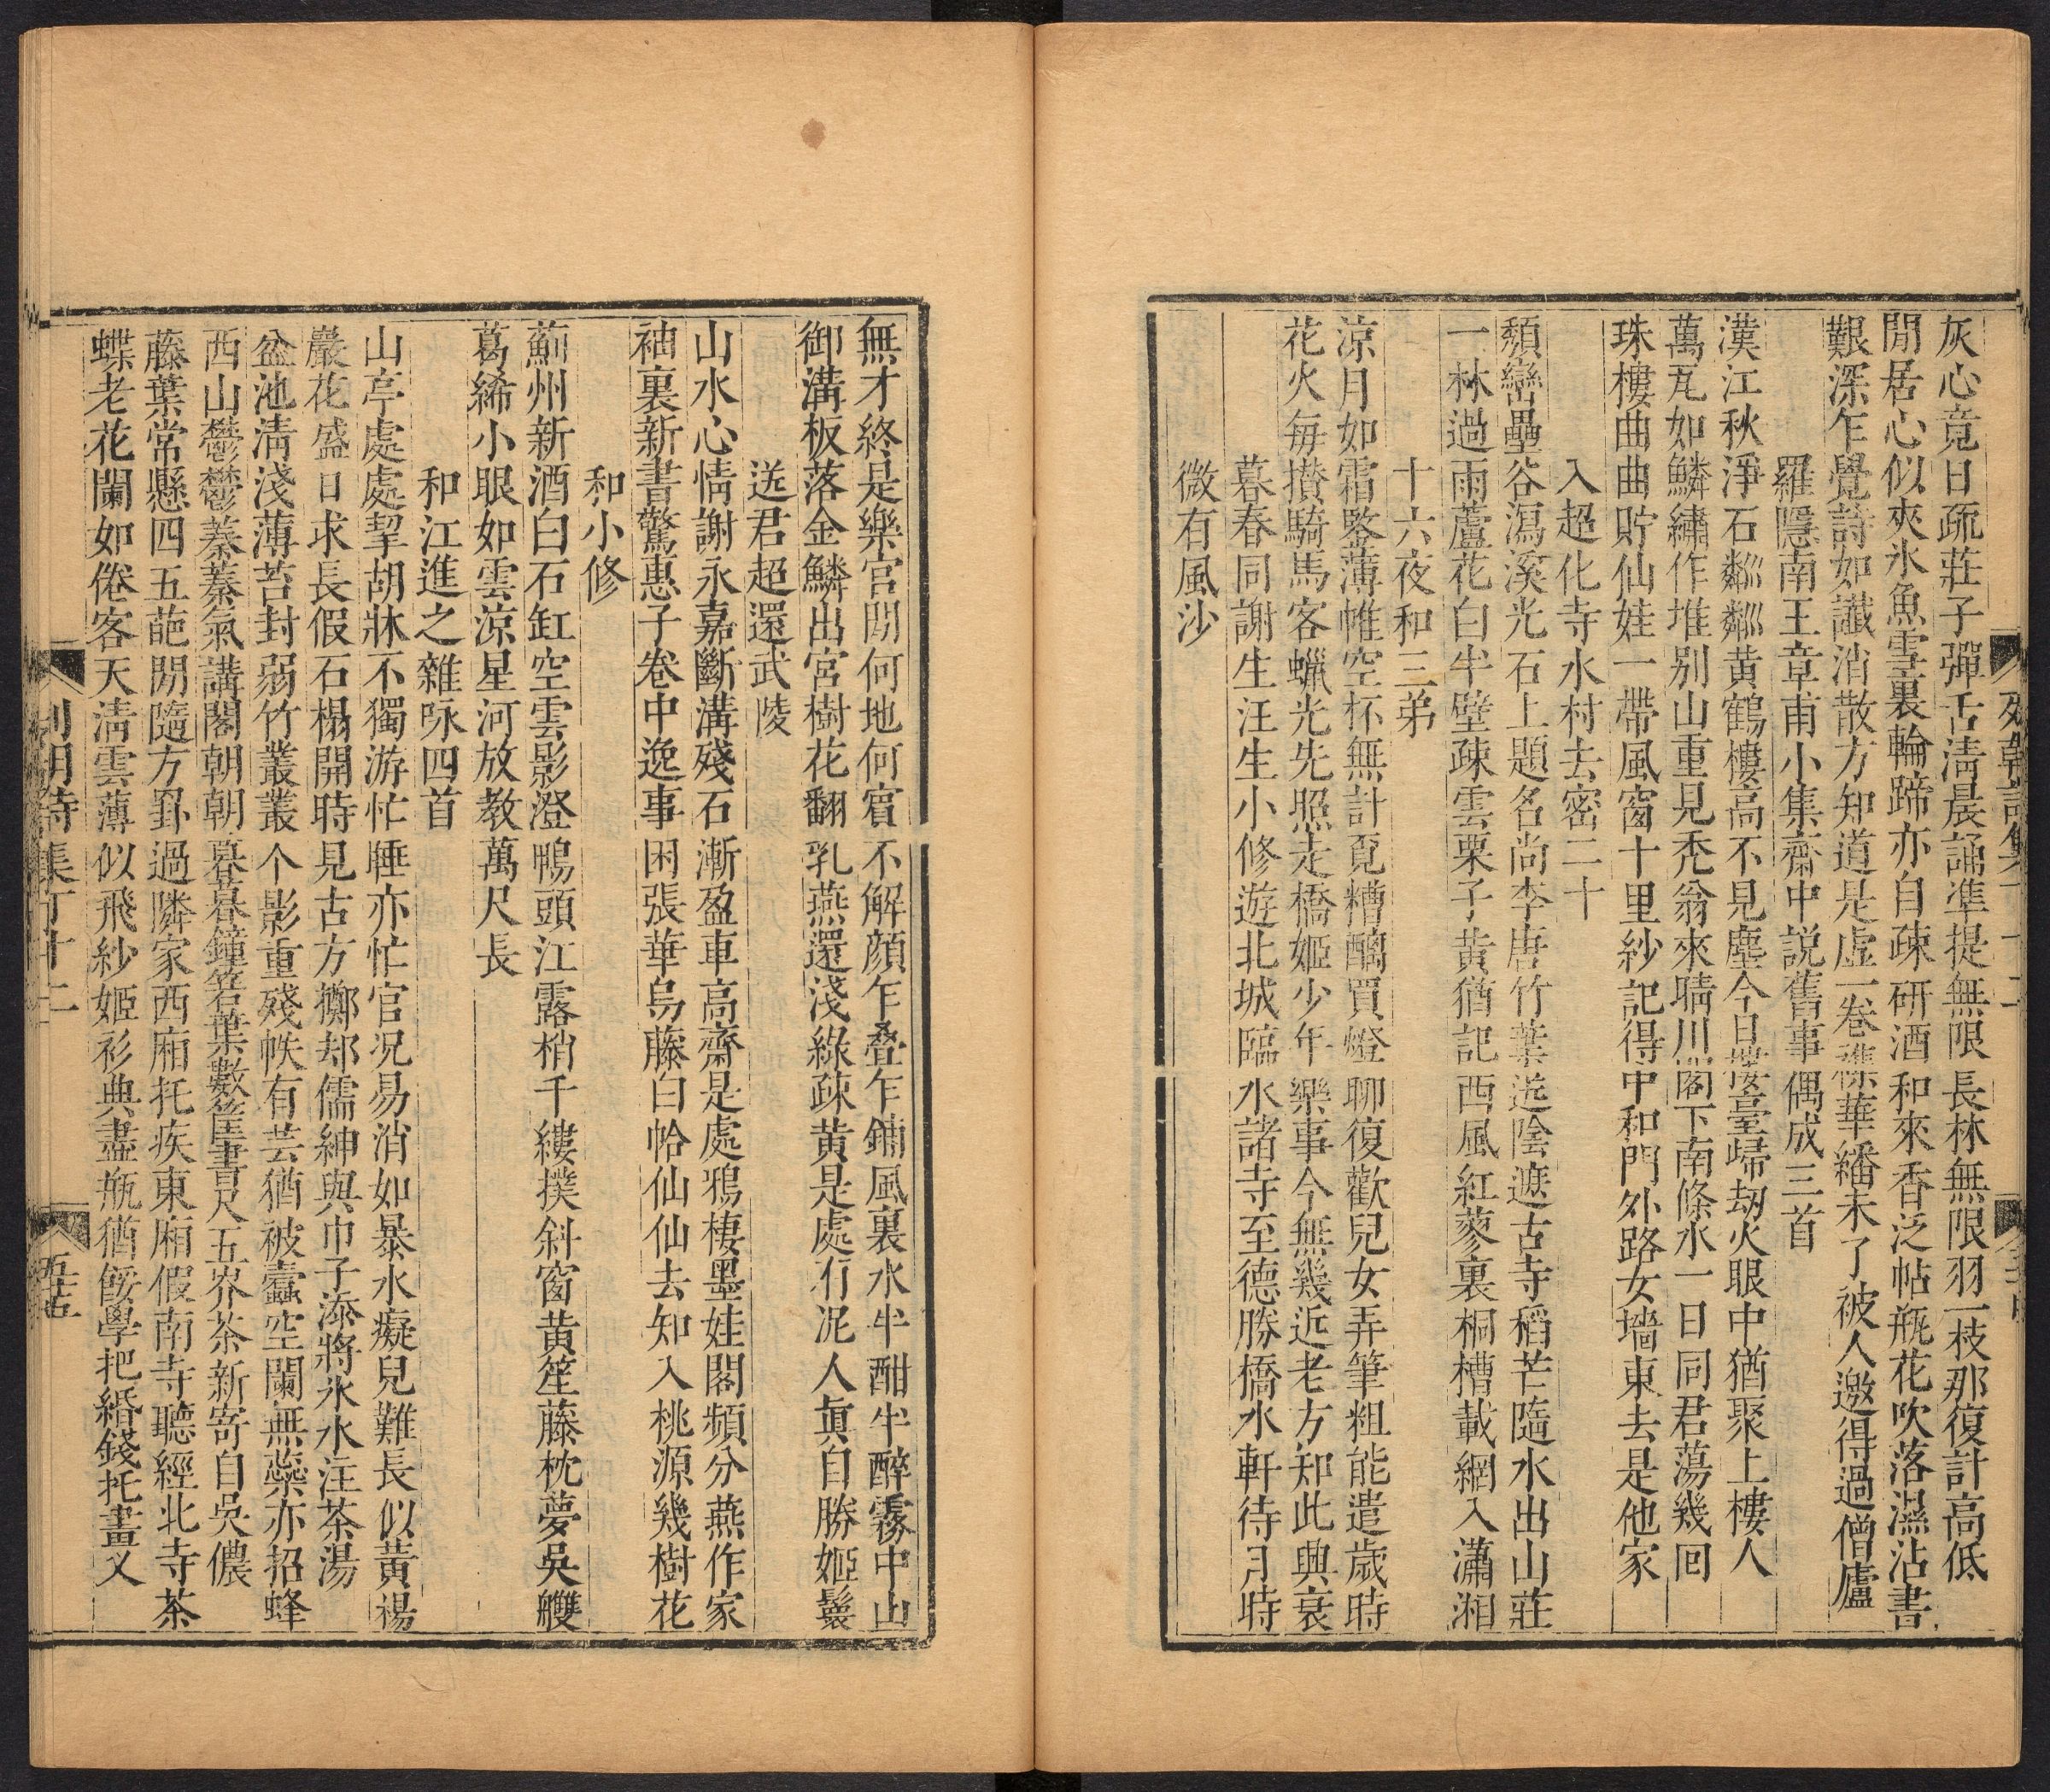 灰心竟日疏莊子彈舌淸晨誦準提無限長林無限羽一枝那復計高低
閒居心似夾氷魚雪裏輪蹄亦自疎硏酒和來香泛帖甁花吹落濕沾書
艱深乍覺詩如讖消散方知道是虛一卷襍華繙未了被人邀得過僧廬
羅隱南王章甫小集齋中説舊事偶成三首
漢江秋淨石粼粼黄鶴樓高不見塵今日樓臺歸刼火眼中猶聚上樓人
萬瓦如鱗繡作堆别山重見秃翁來晴川閣下南條水一日同君蕩幾回
珠樓曲曲貯仙娃一帶風窗十里紗記得中和門外路女墻東去是他家
入超化寺水村去密二十
頽巒壘谷瀉溪光石上題名尚李唐竹葉送陰遮古寺稻芒隨水出山莊
一林過雨蘆花白半壁疎雲栗子黄猶記西風紅蓼裏桐槽載網入瀟湘
十六夜和三弟
涼月如霜鑒薄帷空杯無計覔糟醨買燈聊復歡兒女弄筆粗能遣歲時
花火每攢騎馬客蠟光先照走橋姬少年樂事今無幾近老方知此興衰
暮春同謝生汪生小修遊北城臨水諸寺至德勝橋水軒待月時
微有風沙
無才終是樂官閒何地何賔不解顔乍叠乍鋪風裏水半酣半醉霧中山
御溝板落金鱗出宮樹花翻乳燕還淺綠疎黄是處有泥人眞自勝姬鬟
送君超還武陵
山水心情謝永嘉斷溝殘石漸盈車高齋是處鴉棲墨娃閣頻分燕作家
袖裏新書驚惠子卷中逸事困張華烏藤白帢仙仙去知入桃源幾樹花
和小修
薊州新酒白石缸空雲影澄鴨頭江露梢千縷撲斜窗黄筀藤枕夢吳艭
葛絺小眼如雲涼星河放敎萬尺長
和江進之雜咏四首
山亭處處挈胡牀不獨游忙睡亦忙官况易消如暴水癡兒難長似黃楊
嚴花盛日求長假石榻開時見古方擲却儒紳與巾子添將氷水注茶湯
盆池淸淺薄苔封弱竹叢叢个影重殘帙有芸猶被蠹空闌無蘂亦招蜂
西山鬱鬱蓁蓁氣講閣朝朝暮暮鐘箬葉數筐書尺五岕茶新寄自吳儂
藤葉常懸四五葩閒隨方卧過隣家西廂托疾東廂假南寺聽經北寺茶
蝶老花闌如倦客天淸雲薄似飛紗姬衫典盡甁猶餒學把緡錢托畫乂
列朝詩集丁十二
五十五